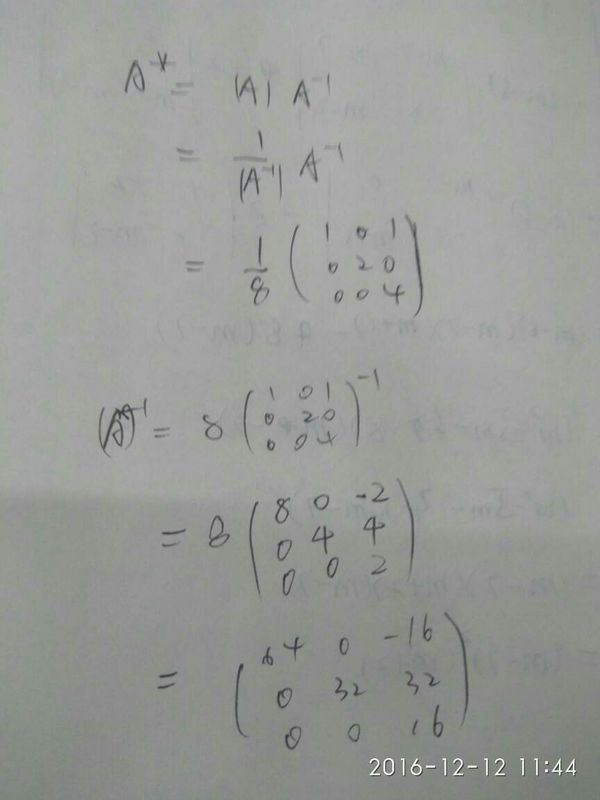 A* = |A| A⁻¹
= 1/|A⁻¹| A⁻¹
= 1/8 (1 0 1
0 2 0
0 0 4)
(A*)⁻¹ = 8 (1 0 1
0 2 0
0 0 4)⁻¹
= 8 (8 0 -2
0 4 4
0 0 2)
= (64 0 -16
0 32 32
0 0 16)
2016-12-12 11:44